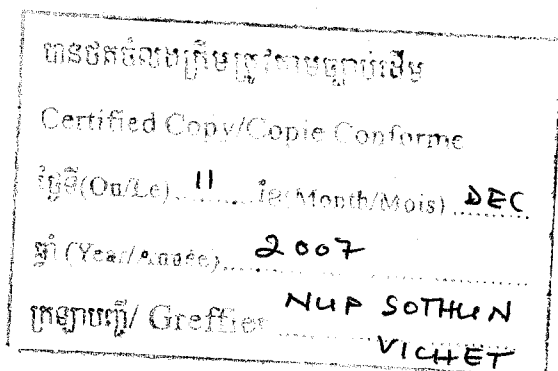 បានថតចំលងត្រឹមត្រូវតាមច្បាប់ដើម
Certified Copy/Copie Conforme
ថ្ងៃទី(On/Le)........11.......ខែ(Month/Mois) DEC
ឆ្នាំ (Year/Année)......2007
ក្រឡាបញ្ជី/ Greffier NUP SOTHUN
VICHET